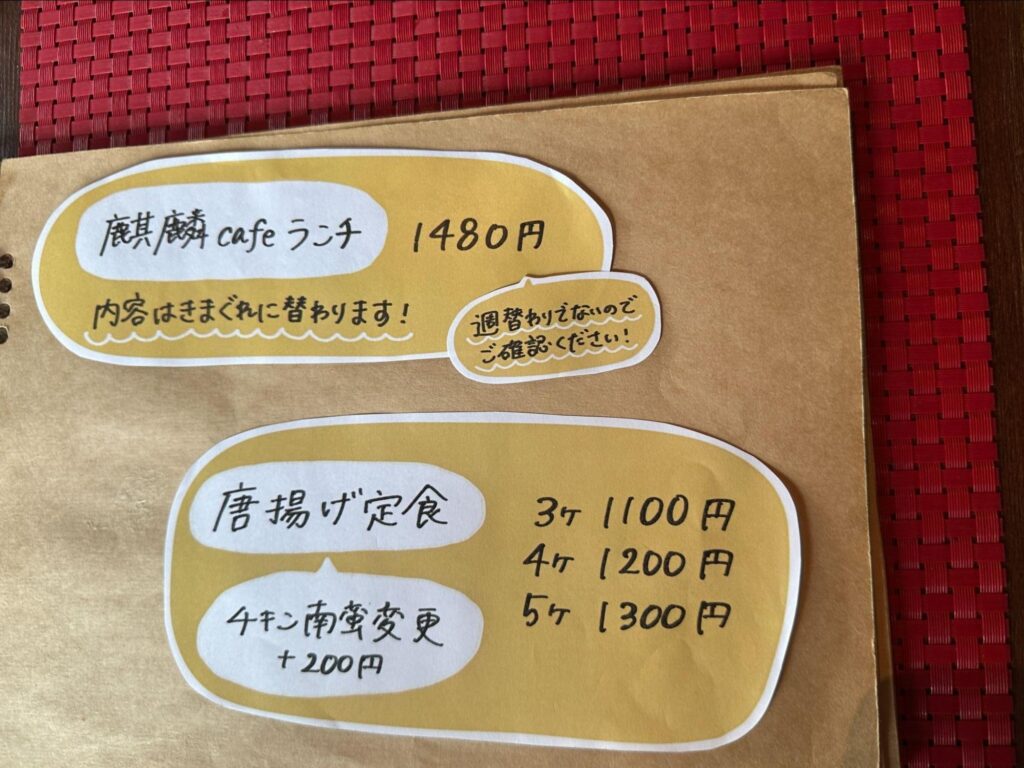 麒麟cafeランチ 1480円
内容はきまぐれに替わります!
週替わりでないので
ご確認ください!
唐揚げ定食
3ヶ 1100円
4ヶ 1200円
5ヶ 1300円
チキン南蛮変更
+200円